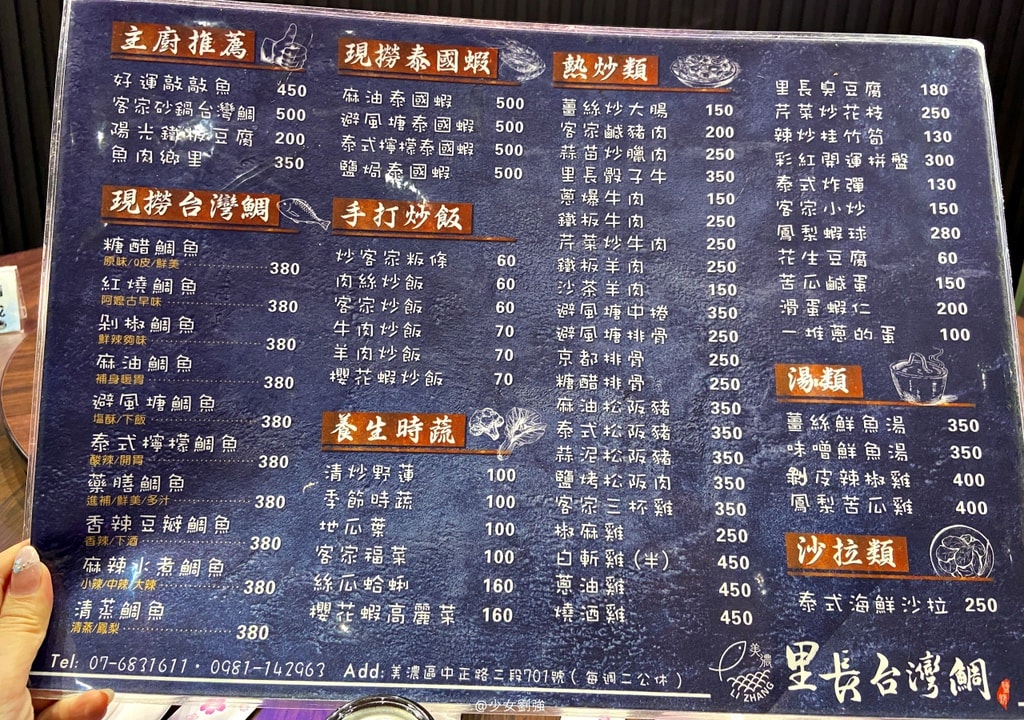 主廚推薦
好運敲敲魚 450
客家砂鍋台灣鯛 500
陽光鐵板豆腐 200
魚肉鄉里 350
現撈台灣鯛
糖醋鯛魚
原味/Q皮/鮮美 380
紅燒鯛魚
阿嬤古早味 380
剁椒鯛魚
鮮辣夠味 380
麻油鯛魚
補身暖胃 380
避風塘鯛魚
塩酥/下飯 380
泰式檸檬鯛魚
酸辣/開胃 380
藥膳鯛魚
進補/鮮美/多汁 380
香辣豆瓣鯛魚
香辣/下酒 380
麻辣水煮鯛魚
小辣/中辣/大辣 380
清蒸鯛魚
清蒸/鳳梨 380
現撈泰國蝦
麻油泰國蝦 500
避風塘泰國蝦 500
泰式檸檬泰國蝦 500
鹽焗泰國蝦 500
手打炒飯
炒客家粄條 60
肉絲炒飯 60
客家炒飯 60
牛肉炒飯 70
羊肉炒飯 70
櫻花蝦炒飯 70
養生時蔬
清炒野蓮 100
季節時蔬 100
地瓜葉 100
客家福菜 100
絲瓜蛤蜊 160
櫻花蝦高麗菜 160
熱炒類
薑絲炒大腸 150
客家鹹豬肉 200
蒜苗炒臘肉 250
里長骰子牛 350
蔥爆牛肉 150
鐵板牛肉 250
芹菜炒牛肉 250
鐵板羊肉 250
沙茶羊肉 250
避風塘中捲 350
避風塘排骨 250
京都排骨 250
糖醋排骨 250
麻油松阪豬 350
泰式松阪豬 350
蒜泥松阪豬 350
鹽烤松阪肉 350
客家三杯雞 350
椒麻雞 250
白斬雞(半) 450
蔥油雞 450
燒酒雞 450
里長臭豆腐 180
芹菜炒花枝 250
辣炒桂竹筍 130
彩虹開運拼盤 300
泰式炸彈 130
客家小炒 150
鳳梨蝦球 280
花生豆腐 60
苦瓜鹹蛋 150
滑蛋蝦仁 200
一堆蔥的蛋 100
湯類
薑絲鮮魚湯 350
味噌鮮魚湯 350
剝皮辣椒雞 400
鳳梨苦瓜雞 400
沙拉類
泰式海鮮沙拉 250
Tel: 07-6831611・0981-142963 Add: 美濃區中正路二段701號(每週二公休)
美濃
LI ZHANG
里長台灣鯛
@少女劉強